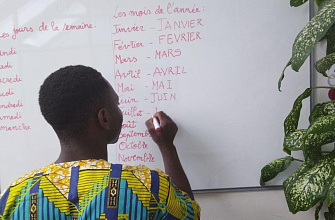 Les jours de la semaine.
ndi
ardi
rcredi
udi
endredi
amedi
manche
Les mois de l'année.
Janvier - JANVIER
Février - FÉVRIER
Mars - MARS
Avril - AVRIL
Mai - MAI
Juin - JUIN
Juillet -
Août
Septemb
Octobre
Novembre
HOH